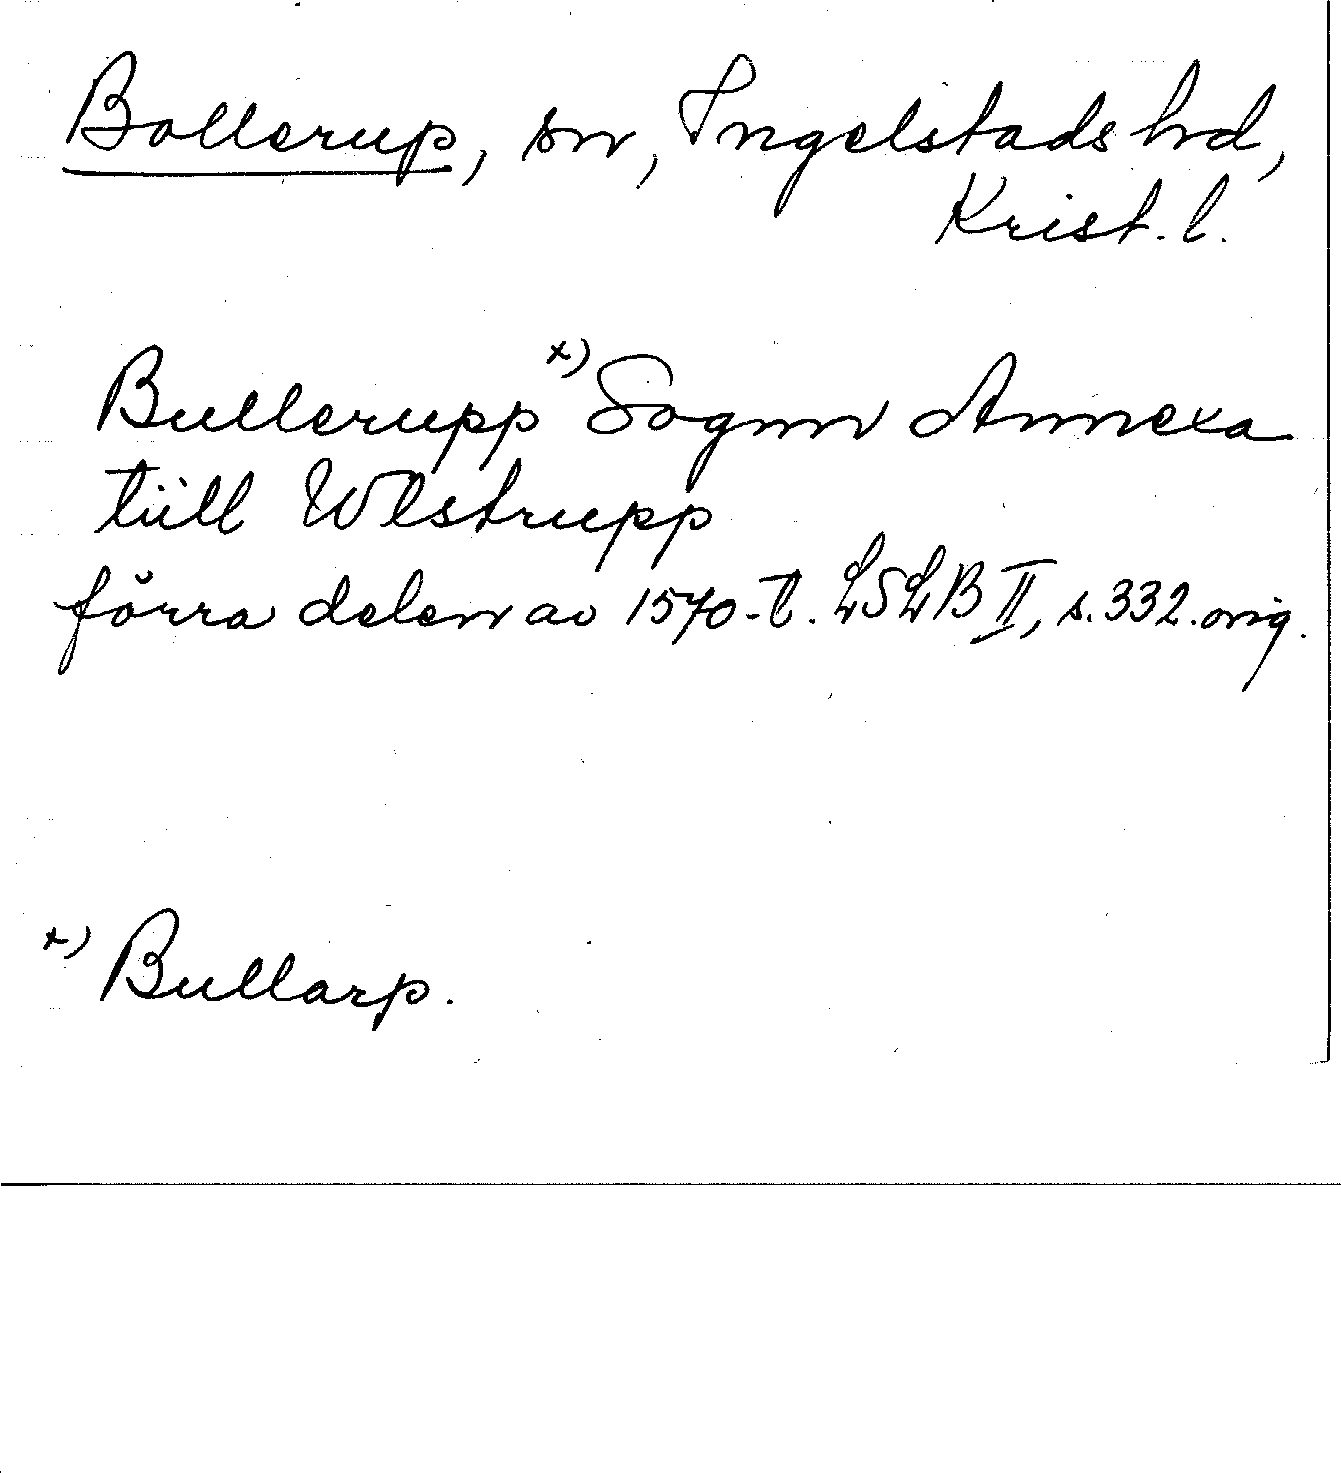 Bollerup, sn, Ingelstads hd,
Krist. l.
Bullerupp x) Sognn Annexa
tiill Wlstrupp
förra delen av 1570-t. LSLB II, s. 332. orig.
x) Bullarp.